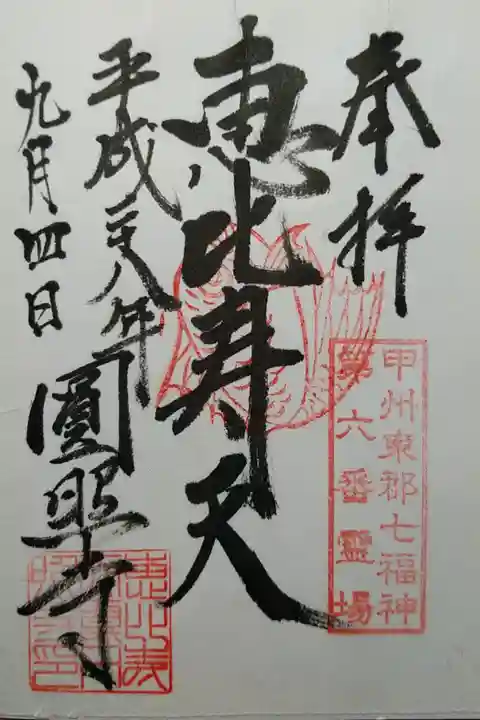 奉拝
甲州東郡七福神
第六番霊場
恵比寿天
平成二八年
九月四日
圓照寺